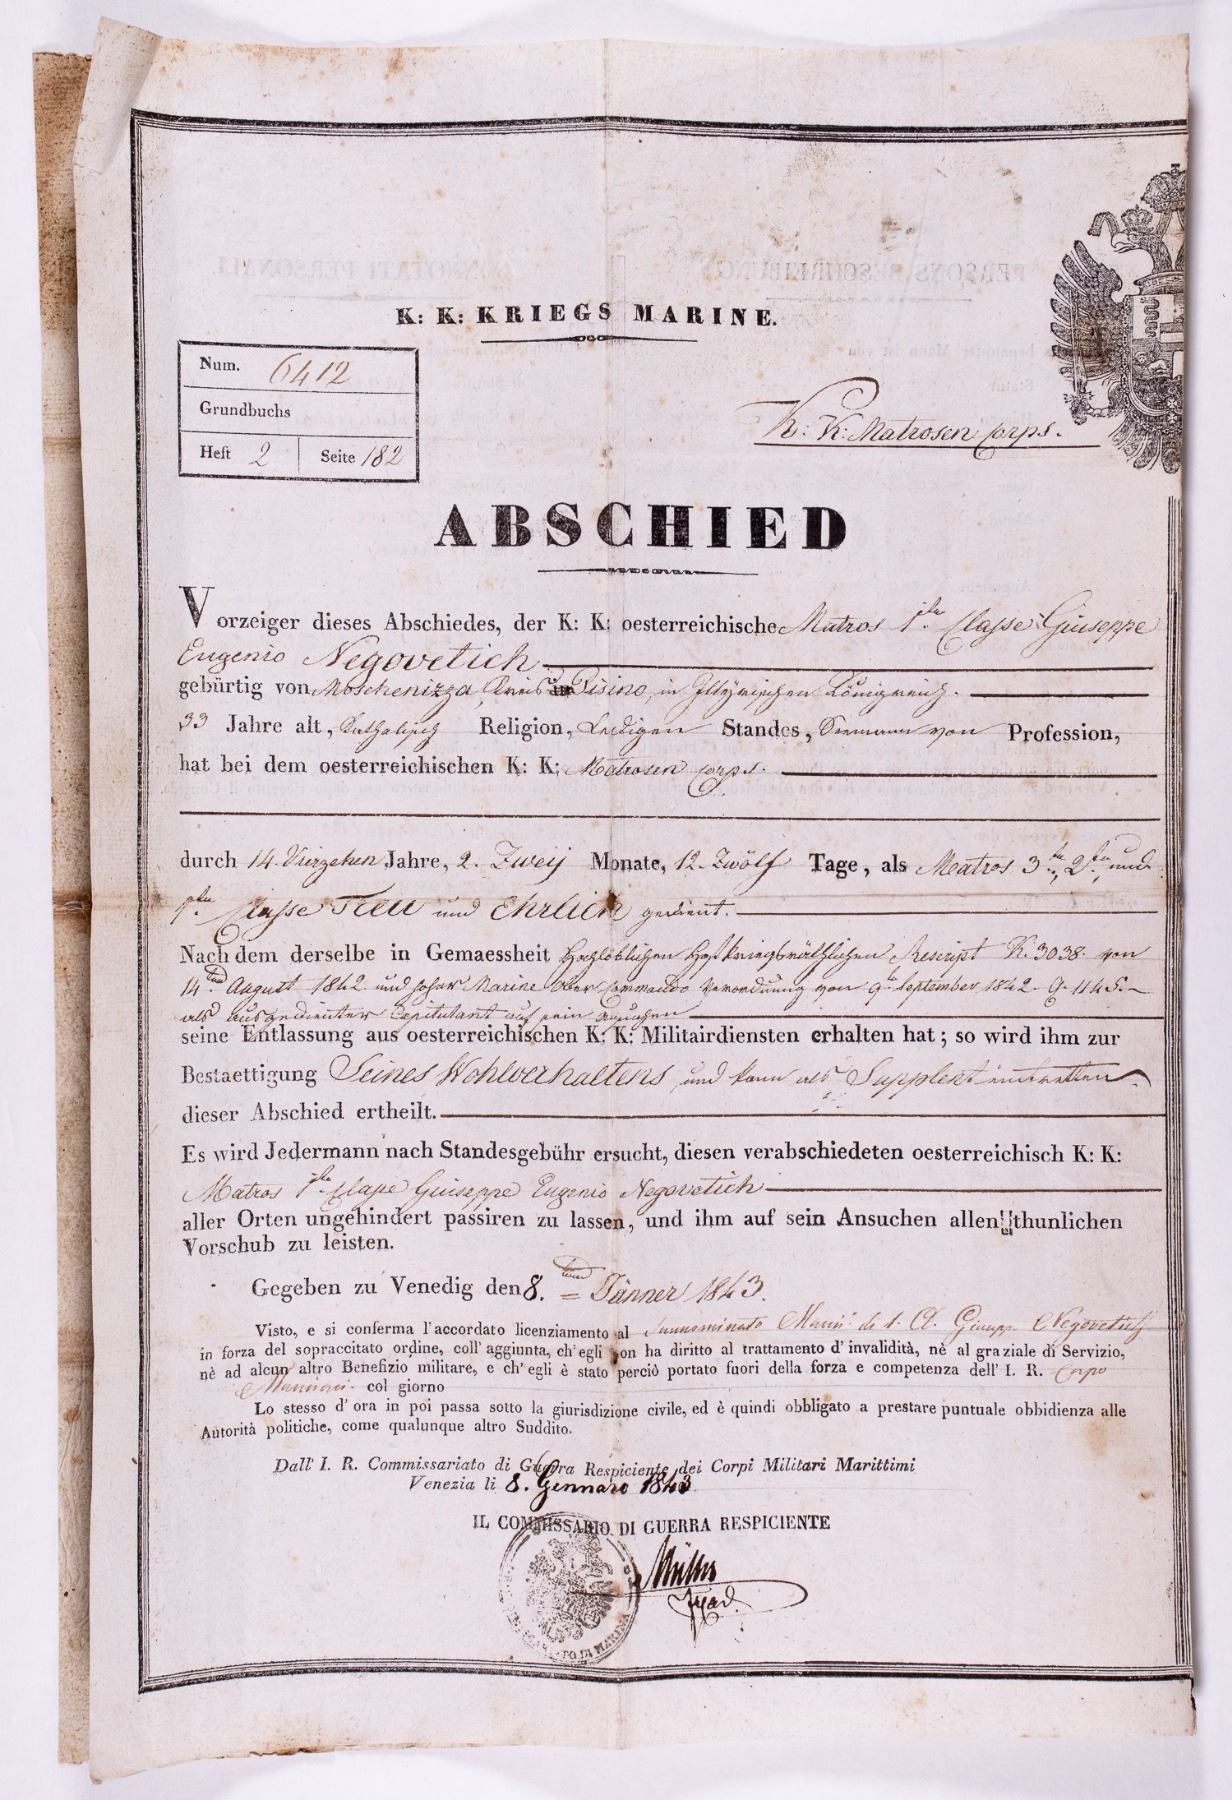 K: K: KRIEGS MARINE.
Num. 6412
Grundbuchs
Heft 2 Seite 182
K: K: Matrosen Corps.
ABSCHIED
Vorzeiger dieses Abschiedes, der K: K: oesterreichische Matros 1te Classe Giuseppe
Eugenio Negovetich
gebürtig von Moschenizza, Kreis Pisino, in Illyrischen Königreich.
33 Jahre alt, Katholisch Religion, Ledigen Standes, Seemann von Profession,
hat bei dem oesterreichischen K: K: Matrosen Corps.
durch 14. Vierzehen Jahre, 2. Zweÿ Monate, 12. Zwölf Tage, als Matros 3te, 2te und
1te Classe Treu und Ehrlich gedient.
Nach dem derselbe in Gemaessheit Hochlöblichen Hofkriegsräthlichen Rescript K. 3038. von
14ten August 1842. und hoher Marine Ober Commando Verordnung von 9te September 1842. 1145.
als ausgedienter Capitulant auf sein
seine Entlassung aus oesterreichischen K: K: Militairdiensten erhalten hat; so wird ihm zur
Bestaettigung Seines Wohlverhaltens, und kann als Supplent eintretten
dieser Abschied ertheilt.
Es wird Jedermann nach Standesgebühr ersucht, diesen verabschiedeten oesterreichisch K: K:
Matros 1te Classe Giuseppe Eugenio Negovetich
aller Orten ungehindert passiren zu lassen, und ihm auf sein Ansuchen allen thunlichen
Vorschub zu leisten.
Gegeben zu Venedig den 8.ten Jänner 1843.
Visto, e si conferma l'accordato licenziamento al sunnominato Marin. di 1. Cl. Giusepp. Negovetich
in forza del sopraccitato ordine, coll' aggiunta, ch'egli non ha diritto al trattamento d'invalidità, nè al graziale di Servizio,
nè ad alcun altro Benefizio militare, e ch'egli è stato perciò portato fuori della forza e competenza dell' I. R. Corpo
Marinai col giorno
Lo stesso d'ora in poi passa sotto la giurisdizione civile, ed è quindi obbligato a prestare puntuale obbidienza alle
Autorità politiche, come qualunque altro Suddito.
Dall' I. R. Commissariato di Guerra Respiciente dei Corpi Militari Marittimi
Venezia li 8. Gennaro 1843
IL COMMISSARIO DI GUERRA RESPICIENTE